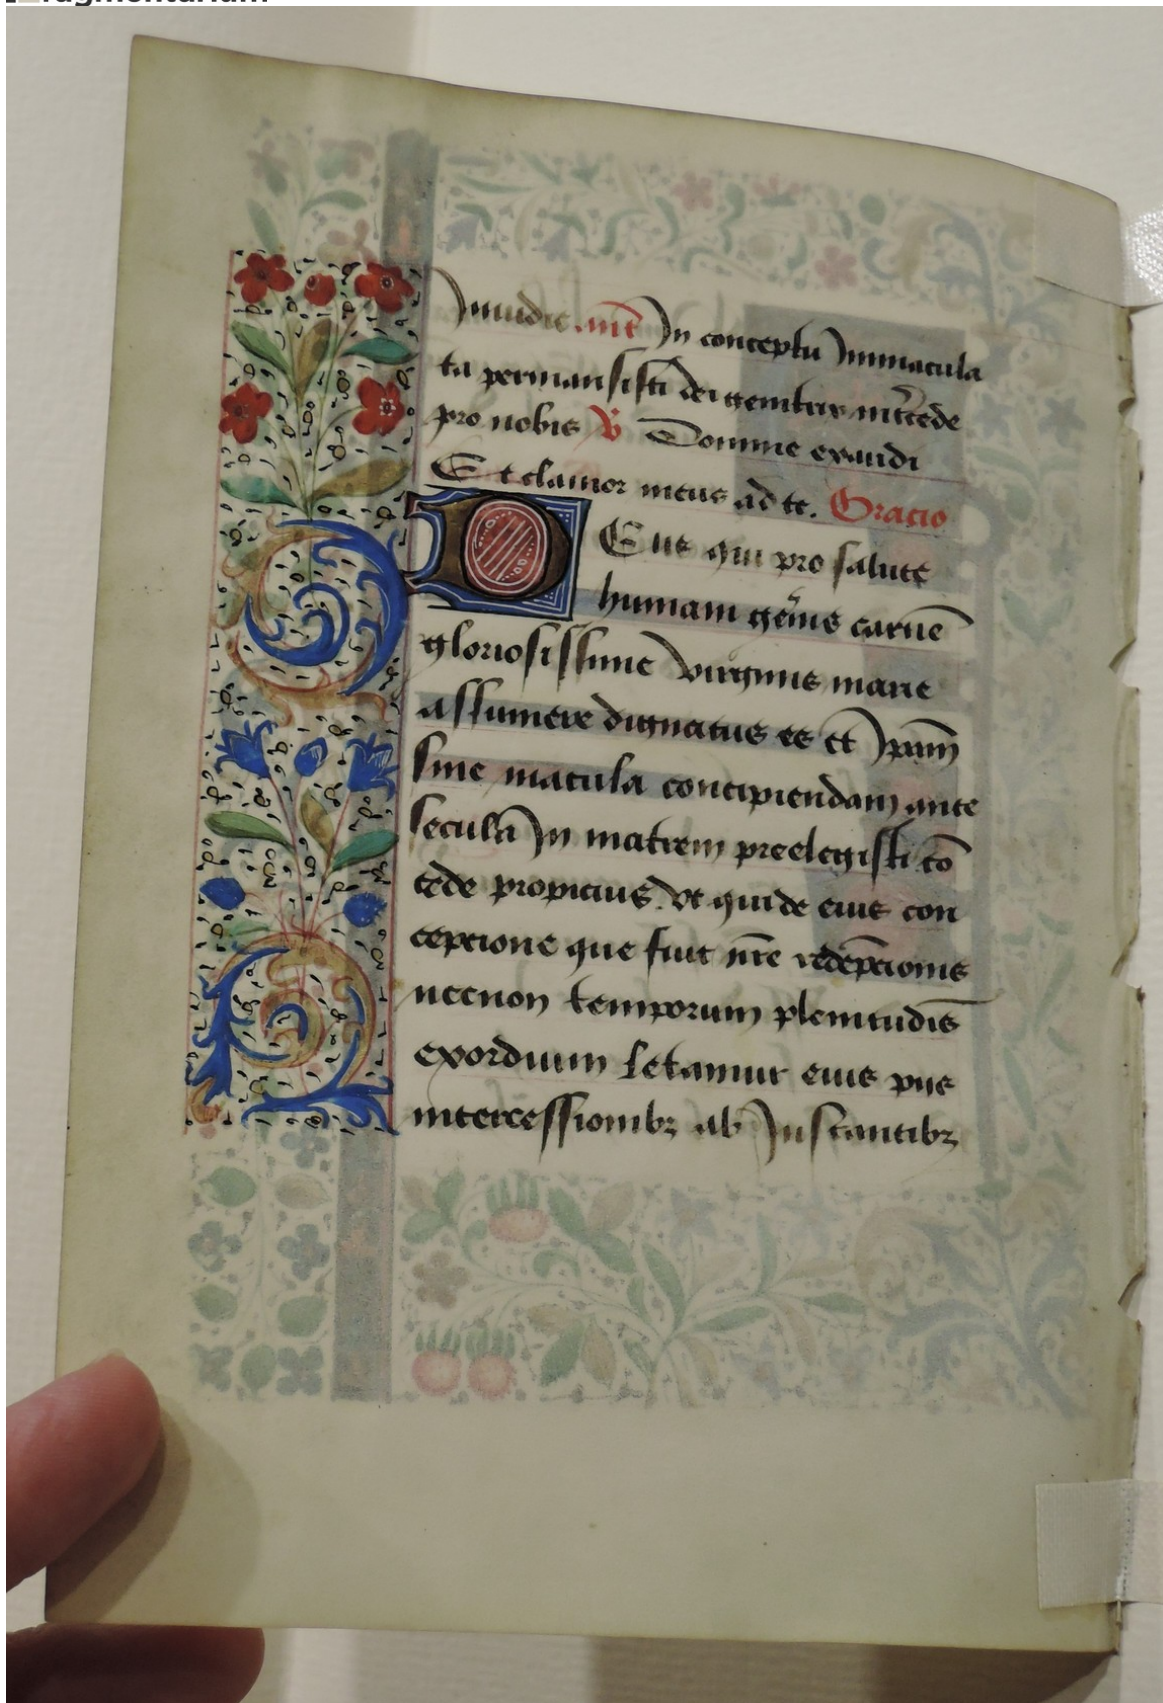 ragmentarium
In conceptu Immacula
ta permansisti dei genitrix int̄cede
pro nobis ꝟ Domine exaudi
Et clamor meus ad te. Oracio
DEus qui pro salute
humani gēn̄is carnē
gloriosissime virginis marie
assumere dignatus es et Ipam̄
sine macula concipiendam ante
secula In matrem preelegisti cō
cede propicius vt qui de eius con
cepcione que fuit nr̄e redēpcionis
necnon temporum plenitudīs
exordium letamur eius pijs
intercessionibꝫ ab Instantibꝫ